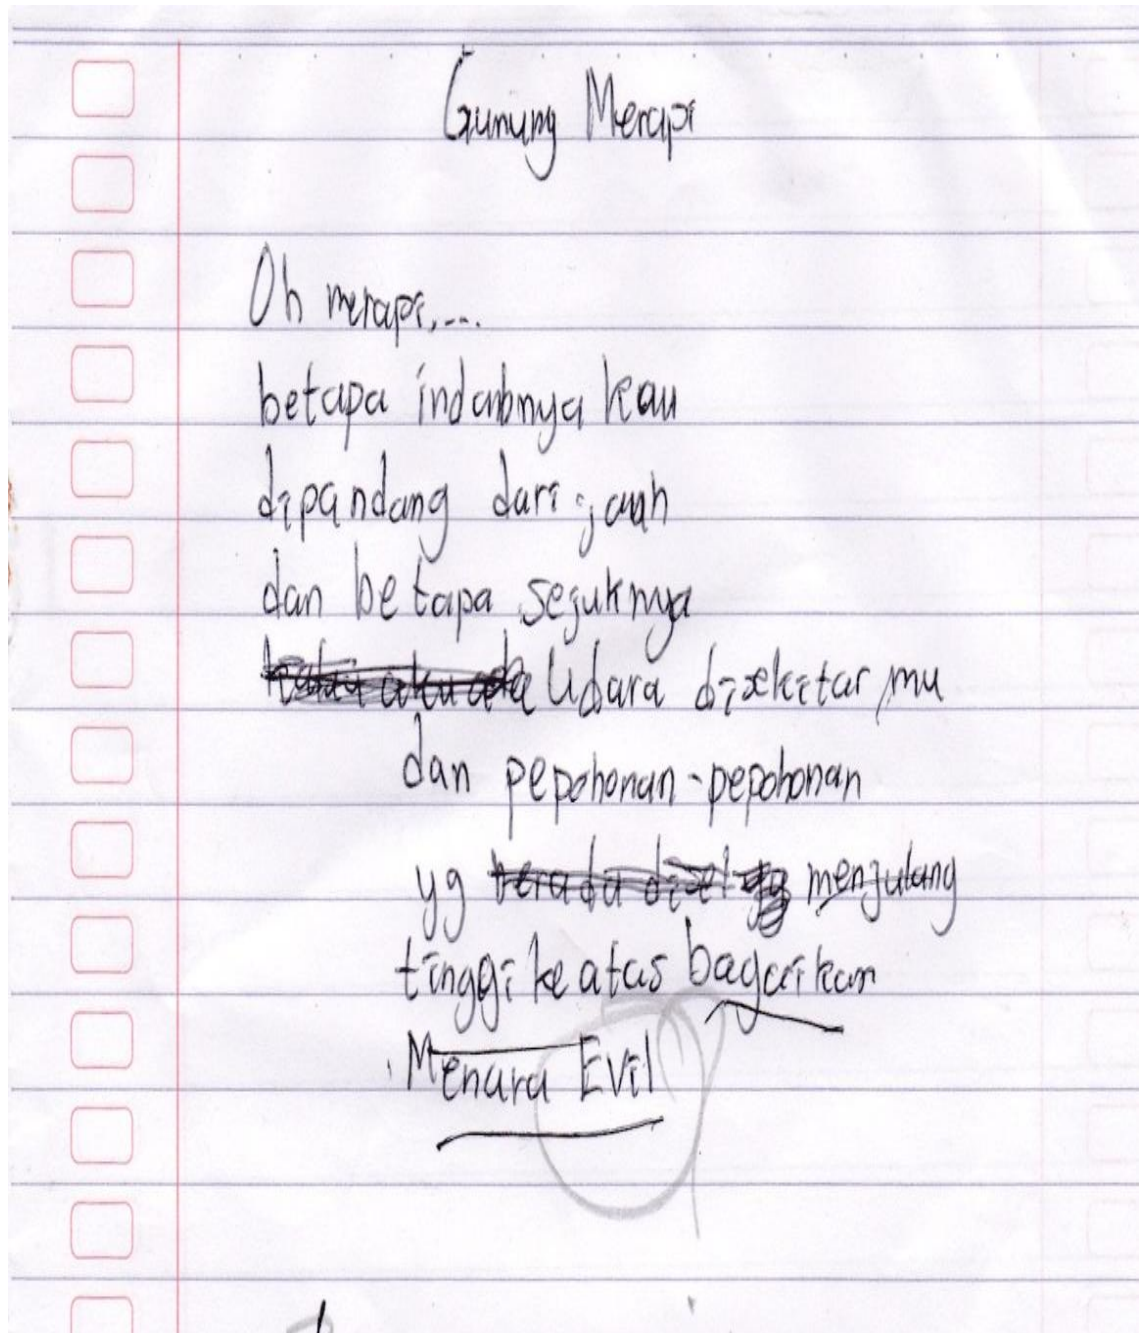 Gunung Merapi
Oh merapi,...
betapa indahnya kau
dipandang dari jauh
dan betapa sejuknya
Udara disekitar mu
dan pepohonan-pepohonan
yg menjulang
tinggi keatas bagaikan
Menara Evil